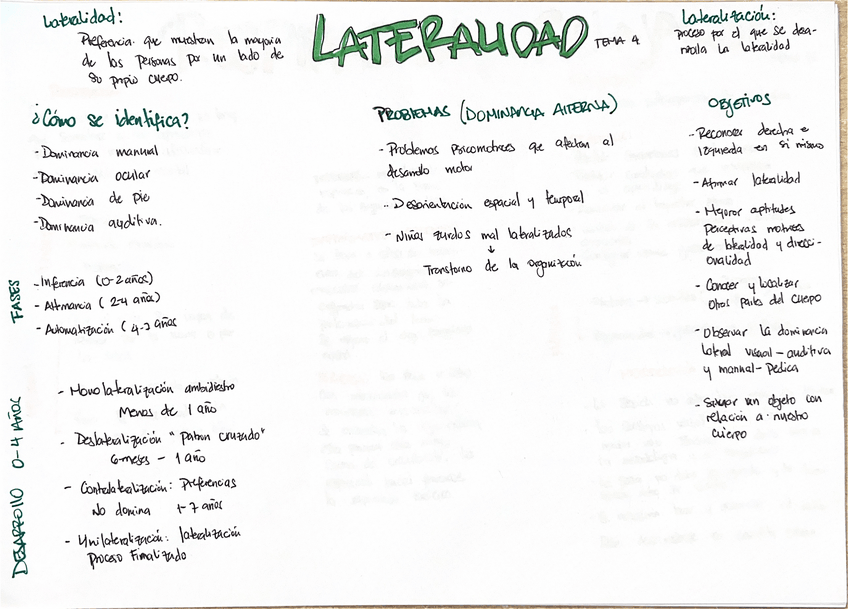 Lateralidad:
Preferencia que muestran la mayoria
de los personas por un lado de
su propio cuerpo.
LATERALIDAD TEMA 4
Lateralización:
proceso por el que se desa-
rrolla la lateralidad
¿Cómo se identifica?
- Dominancia manual
- Dominancia ocular
- Dominancia de pie
- Dominancia auditiva.
FASES
- Inferencia (0-2 años)
- Afirmancia (2-4 años)
- Automatización (4-7 años
DESARROLLO 0-4 AÑOS
- Monolateralización ambidiestro
Menos de 1 año
- Deslateralización "patron cruzado"
6 meses - 1 año
- Contralateralización: Preferencias
No domina 1-7 años
- Unilateralización: lateralización
Proceso Finalizado
PROBLEMAS (DOMINANCIA ALTERNA)
- Problemas Psicomotrices que afectan al
desarrollo motor
- Desorientación espacial y temporal
- Niños zurdos mal lateralizados
↓
Transtorno de la organización
OBJETIVOS
- Reconocer derecha e
Izquierda en si mismo
- Afirmar lateralidad
- Mejorar aptitudes
Perceptivas motrices
de lateralidad y direcci-
onalidad
- Conocer y localizar
otras partes del cuerpo
- Observar la dominancia
lateral visual - auditiva
y manual - Pedica
- Situar un objeto con
relacion a nuestro
cuerpo